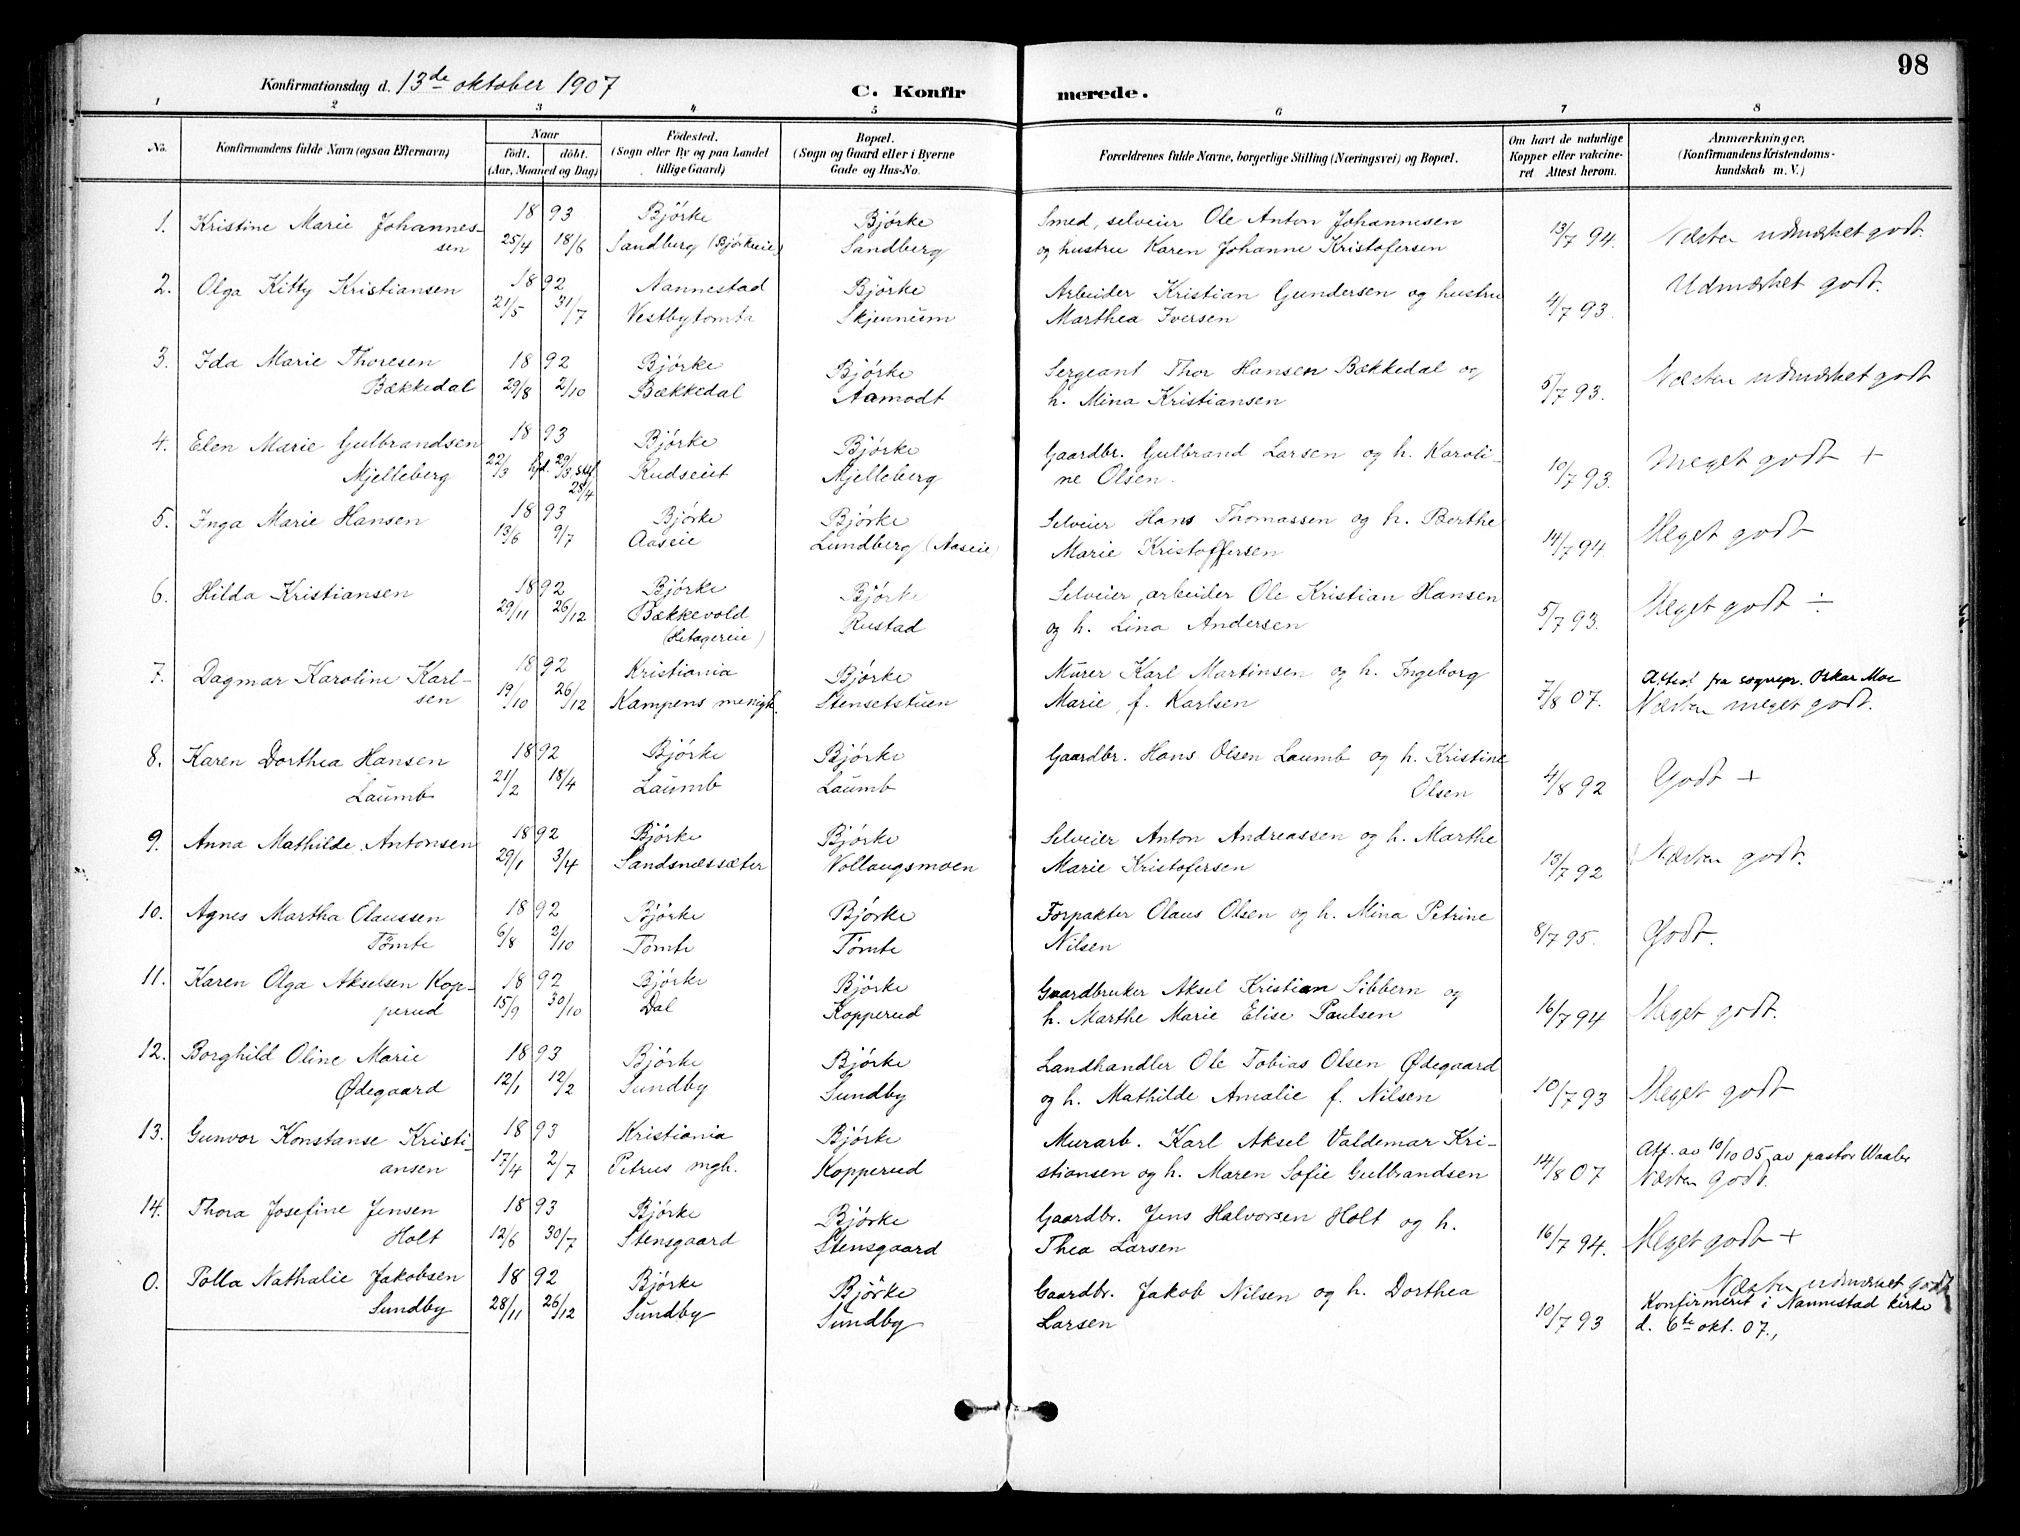 98
Konfirmationsdag d. 13de oktober 1907
C. Konfirmerede.
1 2 3 4 5 6 7 8
No. Konfirmandens fulde Navn (ogsaa Efternavn) Naar født. døbt. (Aar, Maaned og Dag) Fødested. (Sogn eller By og paa Landet tillige Gaard) Bopæl. (Sogn og Gaard eller i Byerne Gade og Hus-No. Forældrenes fulde Navne, borgerlige Stilling (Næringsvei) og Bopæl. Om havt de naturlige Kopper eller vakcineret Attest herom. Anmærkninger. (Konfirmandens Kristendomskundskab m. V.)
1. Kristine Marie Johannes- 1893 Bjørke Bjørke Smed, selveier Ole Anton Johannesen 13/7 94. Næsten udmærket godt.
sen 25/4 18/6 Sandberg (Bjørkeeie) Sandberg og hustru Karen Johanne Kristofersen
2. Olga Kitty Kristiansen 1892 Nannestad Bjørke Arbeider Kristian Gundersen og hustru 4/7 93. Udmærket godt.
21/5 31/7 Vestbytomta Skjennum Marthea Iversen
3. Ida Marie Thoresen 1892 Bjørke Bjørke Sergeant Thor Hansen Bækkedal og 5/7 93. Næsten udmærket godt
Bækkedal 29/8 2/10 Bækkedal Aamodt h. Mina Kristiansen
4. Elen Marie Gulbrandsen 1893 Bjørke Bjørke Gaardbr. Gulbrand Larsen og h. Karoli- 10/7 93. Meget godt +
Mjelleberg 22/3 hjd. 29/3, stf. Rudseiet Mjelleberg ne Olsen.
28/4
5. Inga Marie Hansen 1893 Bjørke Bjørke Selveier Hans Thomassen og h. Berthe 14/7 94 Meget godt
13/6 9/7 Aaseie Lundberg (Aaseie) Marie Kristoffersen
6. Hilda Kristiansen 1892 Bjørke Bjørke Selveier, arbeider Ole Kristian Hansen 5/7 93. Meget godt ÷
29/11 26/12 Bækkevold Rustad og h. Lina Andersen
(Hetagereie)
7. Dagmar Karoline Karl- 1892 Kristiania Bjørke Murer Karl Martinsen og h. Ingeborg 7/8 07. Attest fra sognepr. Oskar Moe
sen 19/10 26/12 Kampens menigh. Stensetstuen Marie, f. Karlsen Næsten meget godt.
8. Karen Dorthea Hansen 1892 Bjørke Bjørke Gaardbr. Hans Olsen Laumb og h. Kristine 4/8 92 Godt +
Laumb 21/2 18/4 Laumb Laumb Olsen
9. Anna Mathilde Antonsen 1892 Bjørke Bjørke Selveier Anton Andreassen og h. Marthe 13/7 92 Næsten godt.
29/1 3/4 Sandsnæssæter Vollaugsmoen Marie Kristofersen
10. Agnes Martha Olaussen 1892 Bjørke Bjørke Forpakter Olaus Olsen og h. Mina Petrine 8/7 95. Godt.
Tømte 6/8 2/10 Tømte Tømte Nilsen
11. Karen Olga Akselsen Kop- 1892 Bjørke Bjørke Gaardbruker Aksel Kristian Sibbern og 16/7 94 Meget godt.
perud 15/9 30/10 Dal Kopperud h. Marthe Marie Elise Paulsen
12. Borghild Oline Marie 1893 Bjørke Bjørke Landhandler Ole Tobias Olsen Ødegaard 10/7 93 Meget godt
Ødegaard 12/1 12/2 Sundby Sundby og h. Mathilde Amalie f. Nilsen
13. Gunvor Konstanse Kristi- 1893 Kristiania Bjørke Murarb. Karl Aksel Valdemar Kri- 14/8 07 Att. av 10/10 05 av pastor Waaler
ansen 17/4 2/7 Petrus mgh. Kopperud stiansen og h. Maren Sofie Gulbrandsen Næsten godt.
14. Thora Josefine Jensen 1893 Bjørke Bjørke Gaardbr. Jens Halvorsen Holt og h. 16/7 94. Meget godt +
Holt 12/6 30/7 Stensgaard Stensgaard Thea Larsen
0. Polla Nathalie Jakobsen 1892 Bjørke Bjørke Gaardbr. Jakob Nilsen og h. Dorthea 10/7 93 Næsten udmærket godt
Sundby 28/11 26/12 Sundby Sundby Larsen Konfirmeret i Nannestad kirke
d. 6te okt. 07.,